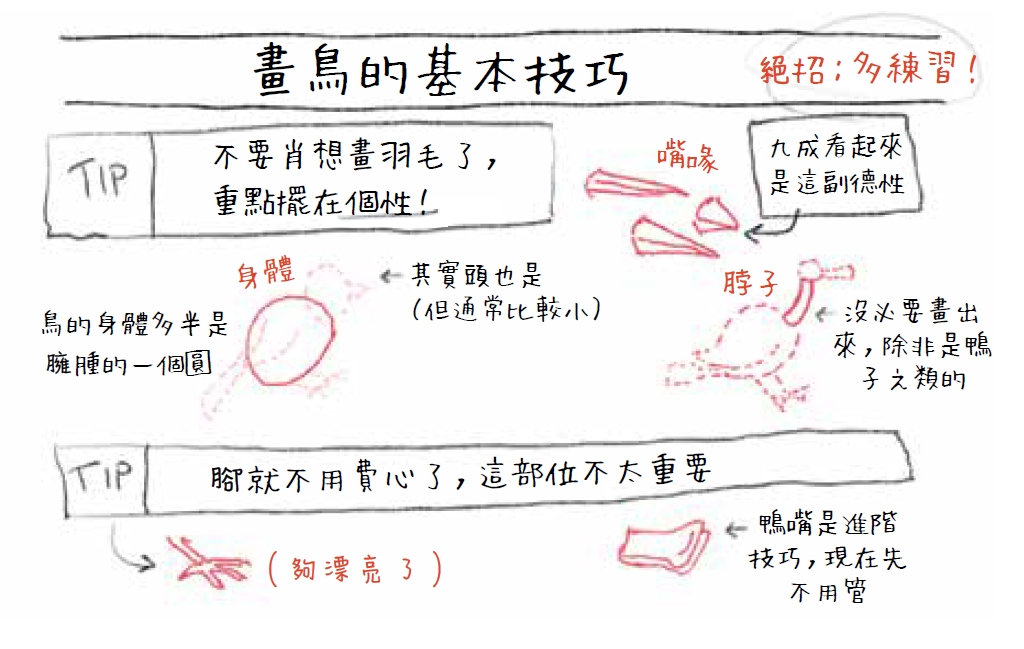 畫鳥的基本技巧
絕招：多練習！
TIP
不要肖想畫羽毛了，
重點擺在個性！
嘴喙
九成看起來
是這副德性
身體
鳥的身體多半是
臃腫的一個圓
← 其實頭也是
（但通常比較小）
脖子
← 沒必要畫出
來，除非是鴨
子之類的
TIP
腳就不用費心了，這部位不太重要
（夠漂亮了）
← 鴨嘴是進階
技巧，現在先
不用管